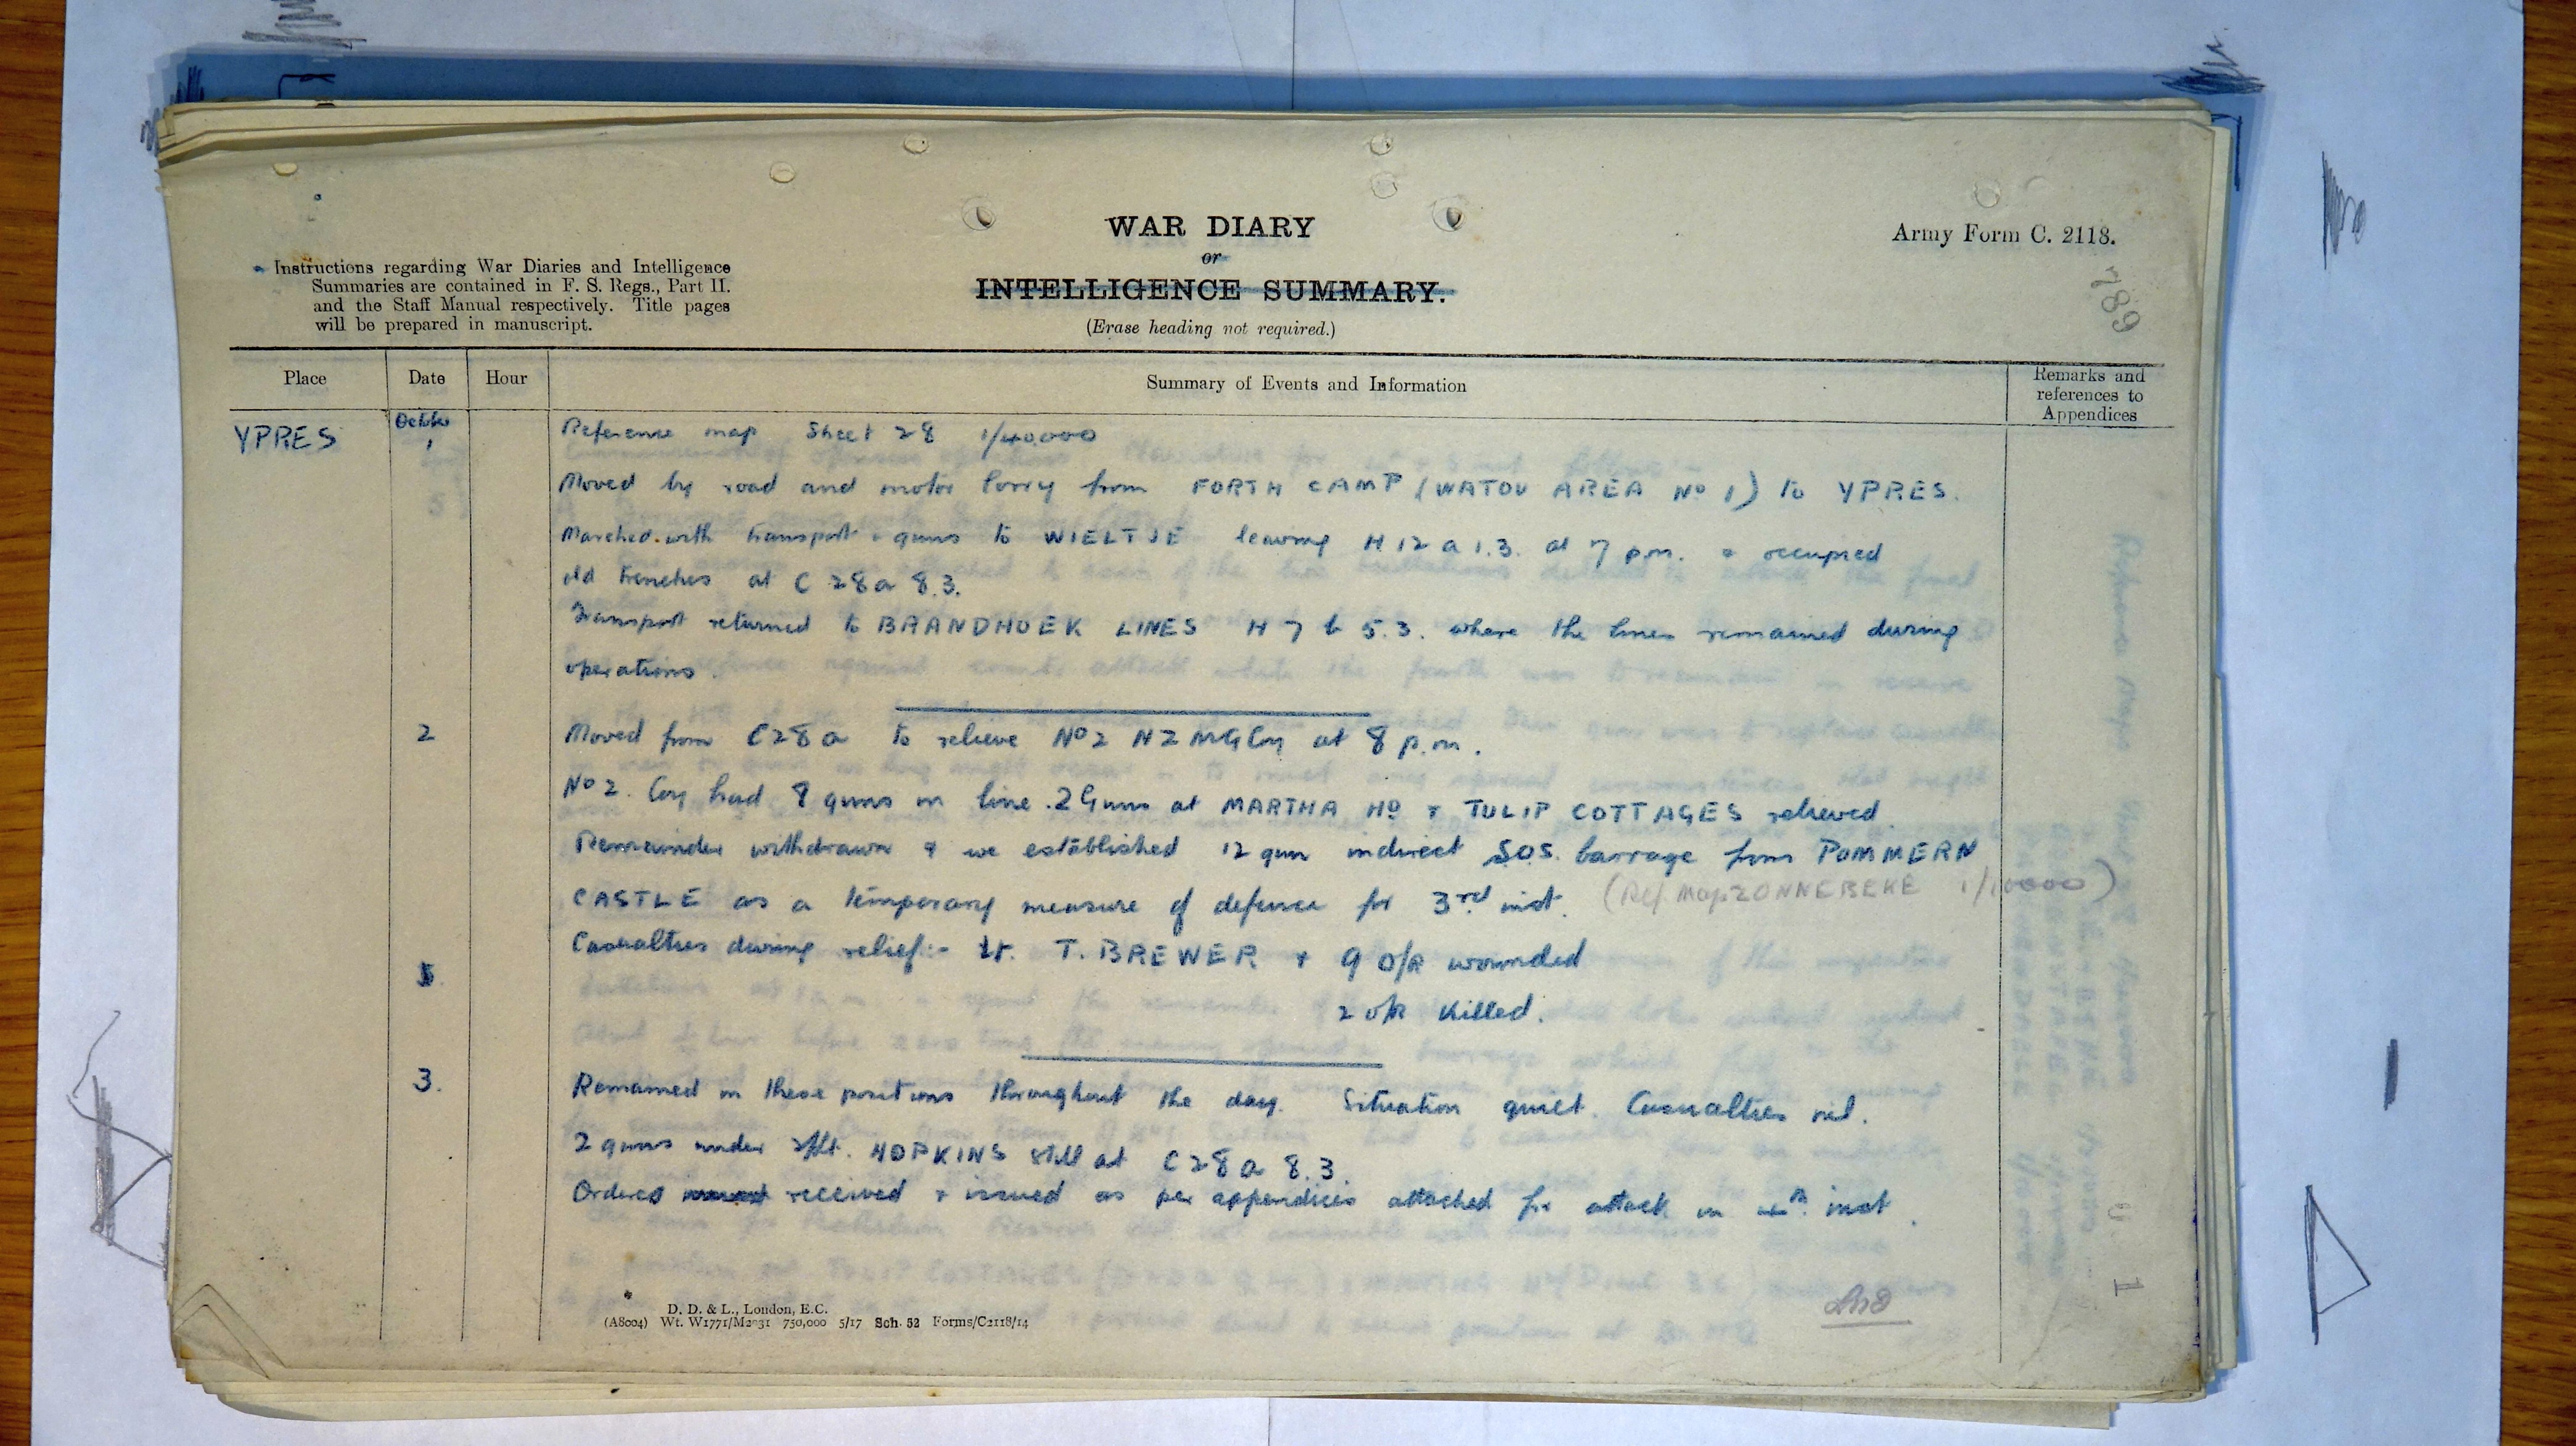 WAR DIARY
or
INTELLIGENCE SUMMARY.
(Erase heading not required.)
Army Form C. 2118.
789
Instructions regarding War Diaries and Intelligence
Summaries are contained in F. S. Regs., Part II.
and the Staff Manual respectively. Title pages
will be prepared in manuscript.
Place Date Hour Summary of Events and Information Remarks and references to Appendices
YPRES October 1 Reference map Sheet 28 1/40,000
Moved by road and motor lorry from FORTH CAMP (WATOU AREA No 1) to YPRES.
Marched with transport & guns to WIELTJE leaving H 12 a 1.3. at 7 p.m. & occupied
old trenches at C 28 a 8.3.
Transport returned to BRANDHOEK LINES H 7 b 5.3. where the lines remained during
operations.
2 Moved from C28a to relieve No 2 NZ MG Coy at 8 p.m.
No 2. Coy had 8 guns in line. 2 Guns at MARTHA Ho & TULIP COTTAGES relieved.
Remainder withdrawn & we established 12 gun indirect S.O.S. barrage from POMMERN
CASTLE as a temporary measure of defence for 3rd inst. (Ref. Map ZONNEBEKE 1/10000)
Casualties during relief:- Lt. T. BREWER & 9 O/R wounded
2 O/R Killed.
3. Remained in these positions throughout the day. Situation quiet. Casualties nil.
2 guns under 2/Lt. HOPKINS still at C 28 a 8.3.
Orders received & issued as per appendices attached for attack on 4th inst.
D. D. & L., London, E.C.
(A8004) Wt. W1771/M2031 750,000 5/17 Sch. 52 Forms/C2118/14